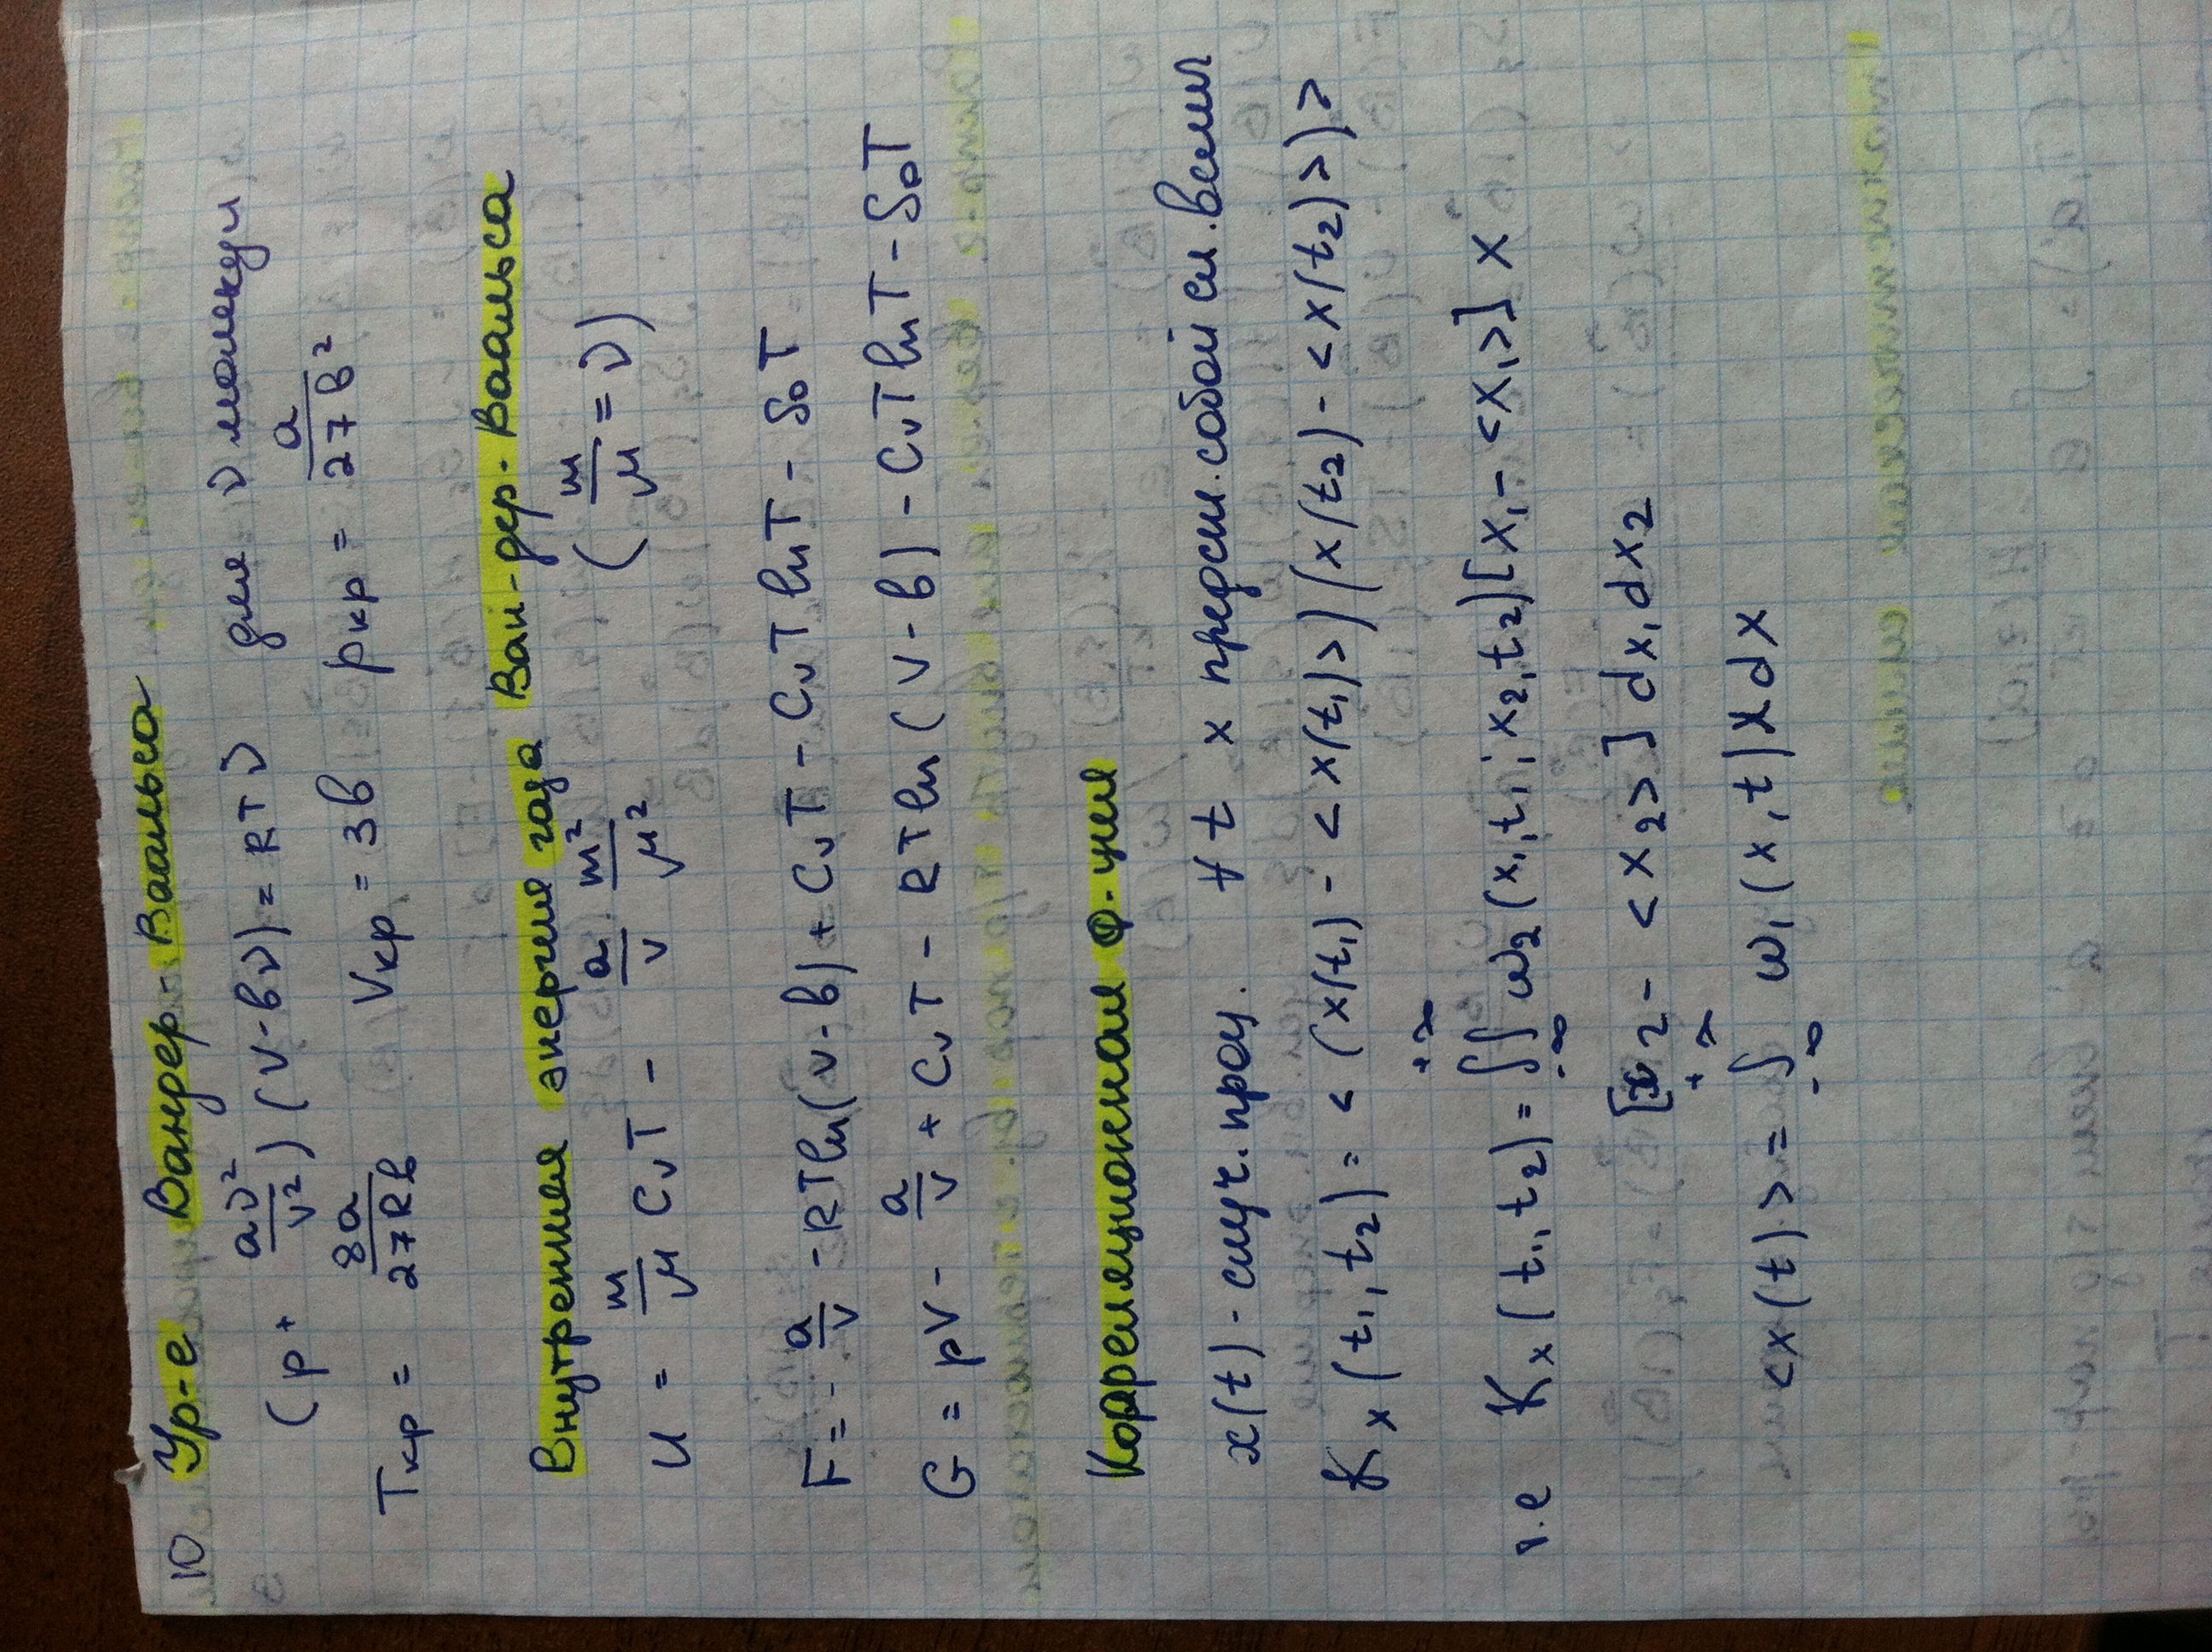 10 Ур-е Вандер-Ваальса
(p + aν²/V²)(V-вν) = RTν для ν молекул
Tкр = 8a/27Rв Vкр = 3в pкр = a/27в²
Внутренняя энергия газа Ван-дер-Ваальса
U = m/μ CvT - a/V m²/μ² (m/μ = ν)
F = - a/V - RTln(V-в) + CvT - CvTlnT - S₀T
G = pV - a/V + CvT - RTln(V-в) - CvTlnT - S₀T
Корреляционная ф-ция
x(t) - случ. проц. ∀ t x предст. собой сл. велич
Kₓ(t₁, t₂) = <(x(t₁) - <x(t₁)>)(x(t₂) - <x(t₂)>)>
т.е Kₓ(t₁, t₂) = ∫∫₋∞⁺∞ ω₂(x₁, t₁; x₂, t₂)[x₁ - <x₁>] x
[x₂ - <x₂>] dx₁dx₂
<x(t)> = ∫₋∞⁺∞ ω₁(x, t)xdx